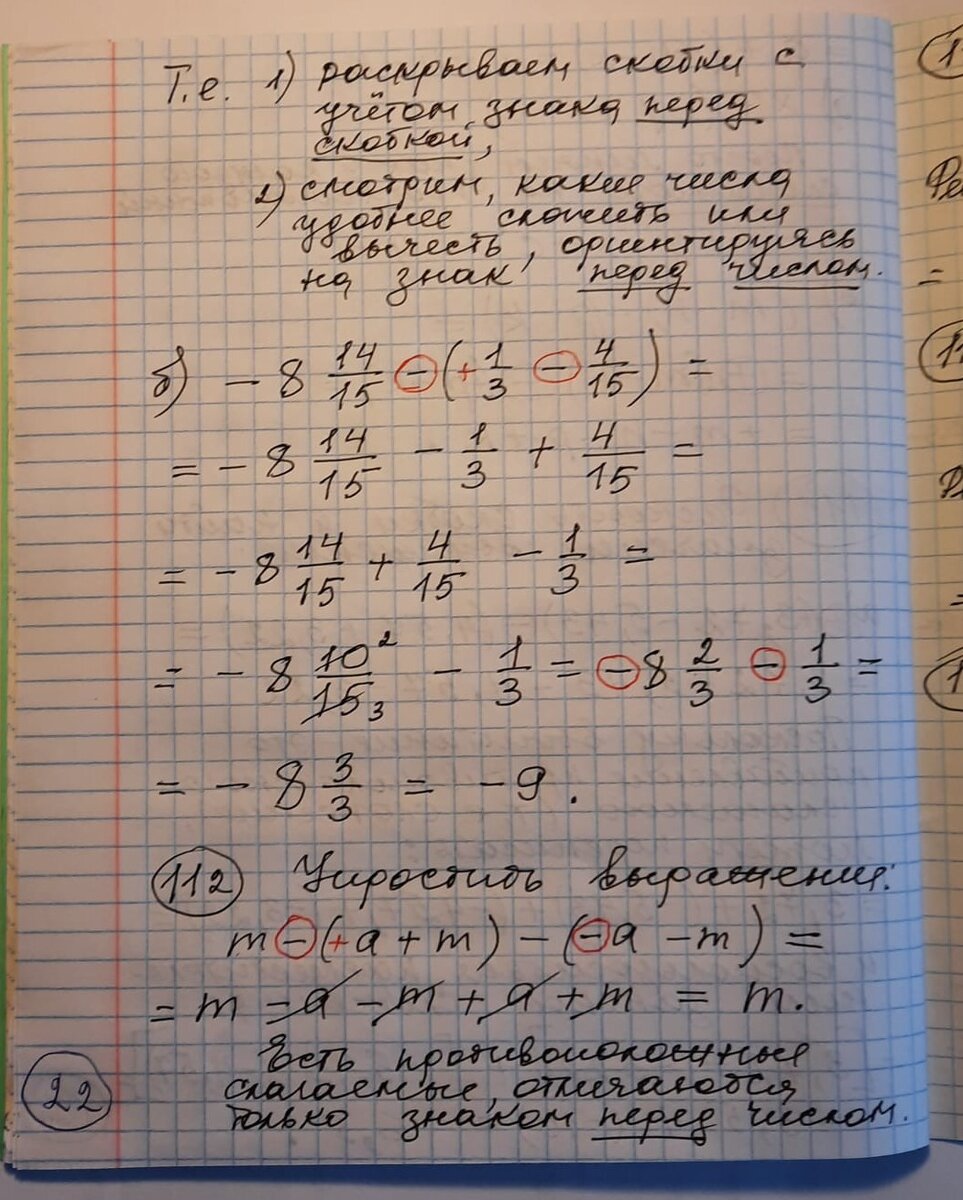 Т.е. 1) раскрываем скобки с
учётом знака перед
скобкой,
2) смотрим, какие числа
удобнее сложить или
вычесть, ориентируясь
на знак перед числом.
б) - 8 14/15 - (+ 1/3 - 4/15) =
= - 8 14/15 - 1/3 + 4/15 =
= - 8 14/15 + 4/15 - 1/3 =
= - 8 10²/15₃ - 1/3 = - 8 2/3 - 1/3 =
= - 8 3/3 = - 9.
112 Упростить выражения:
m - (+a + m) - (-a - m) =
= m - a - m + a + m = m.
Есть противоположные
слагаемые, отличаются
только знаком перед числом.
22